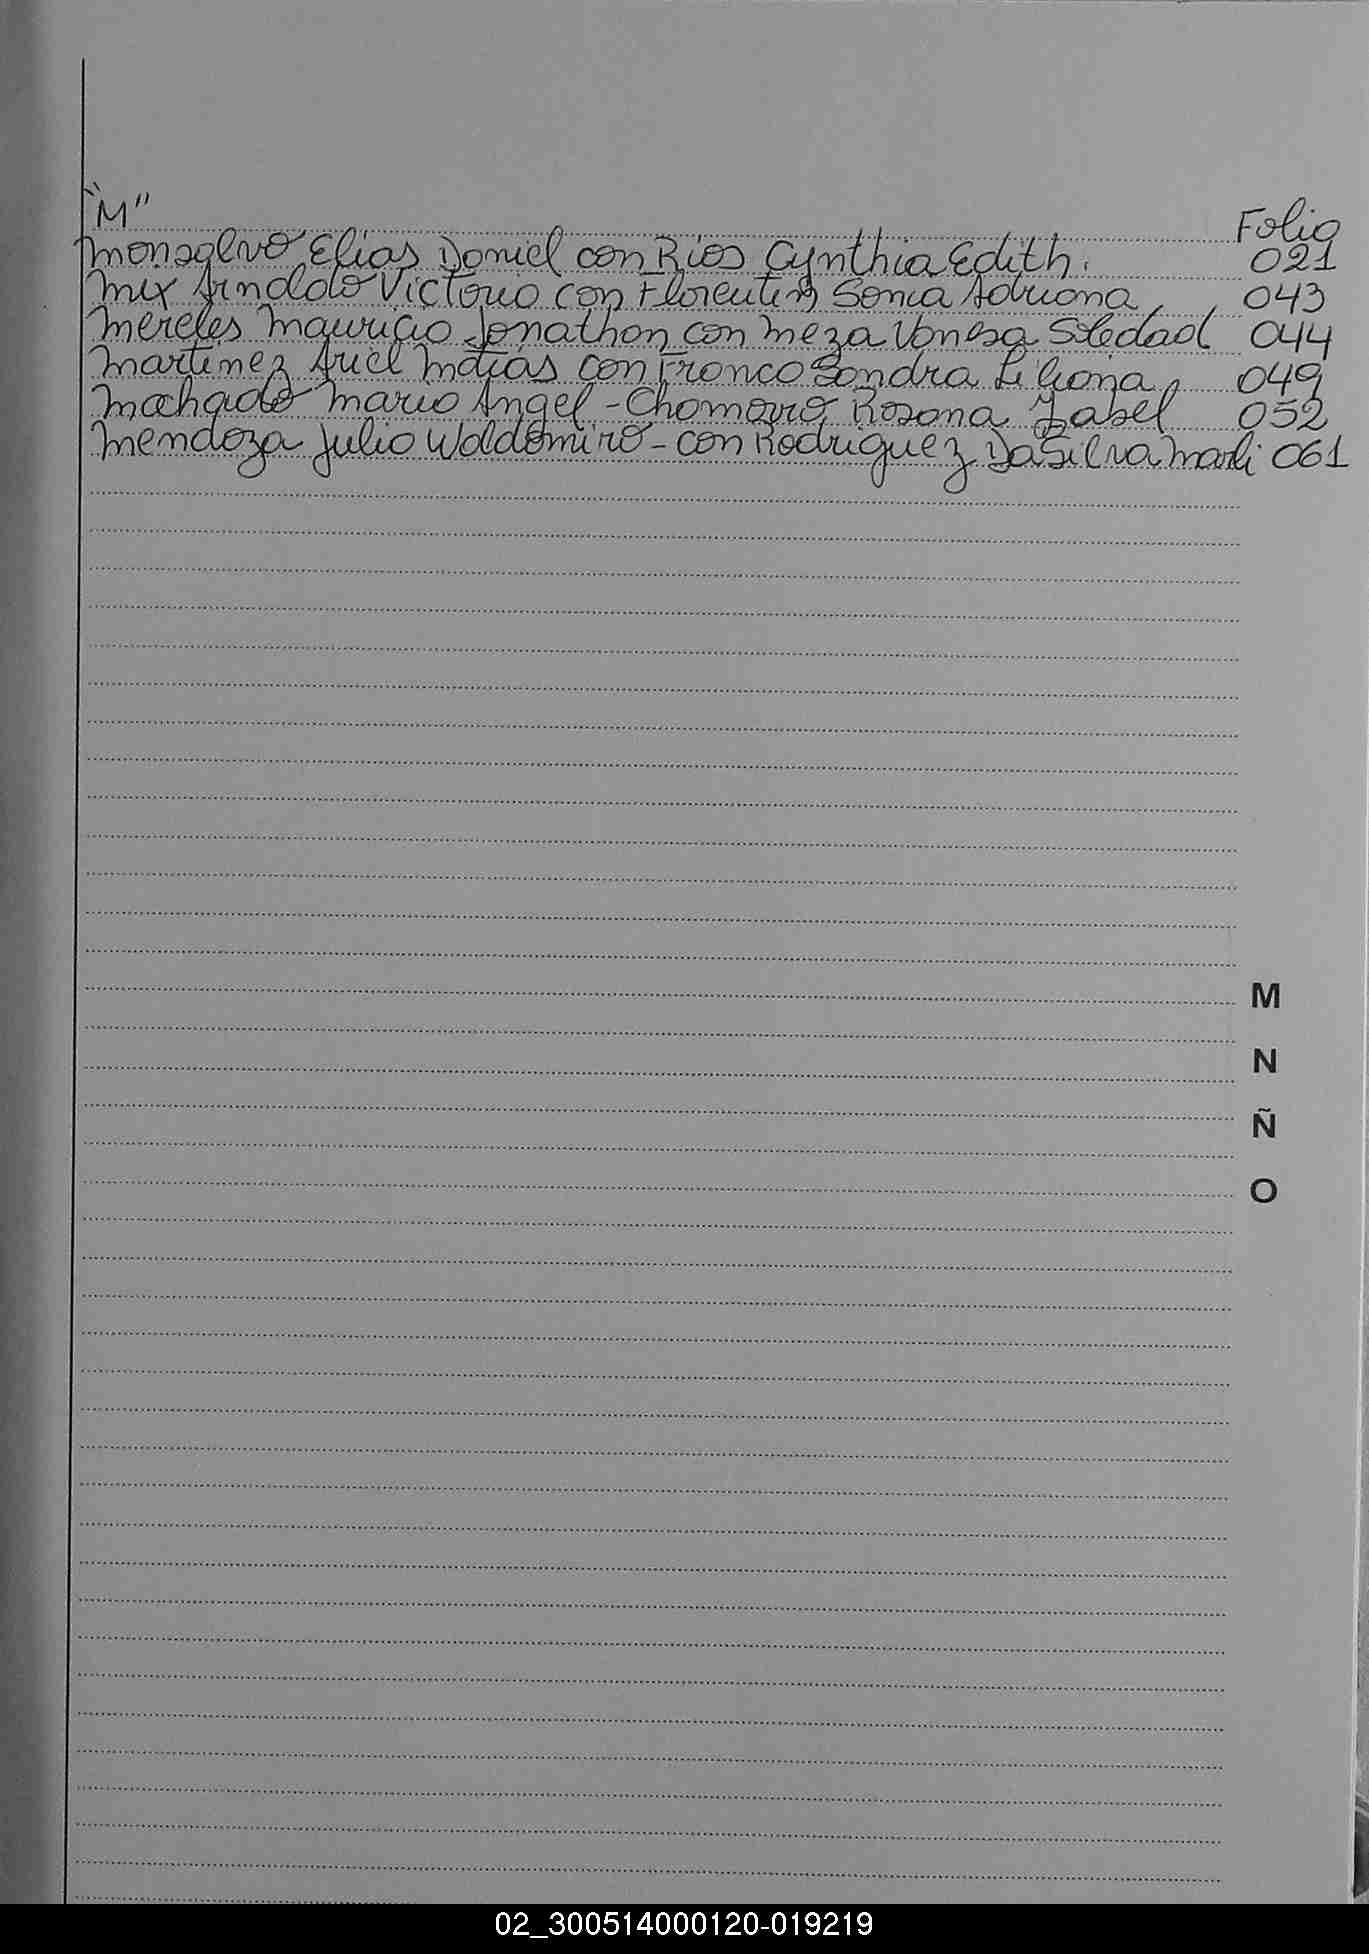 "M"
Folio
Monsalvo Elias Daniel con Rios Cynthia Edith. 021
Mix Arnoldo Victorio con Florentin Sonia Adriana, 043
Mereles Mauricio Jonathan con Meza Vanesa Soledad 044
Martinez Ariel Matias con Franco Sandra Liliana, 049
Machado Mario Angel - Chamorro Rosana Isabel 052
Mendoza Julio Waldomiro - con Rodriguez Da Silva Marli 061
M
N
Ñ
O
02_300514000120-019219